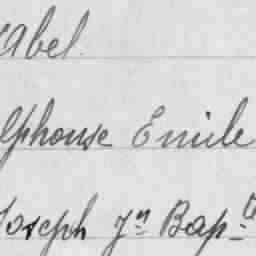 Abel.
Alphonse Emile
Joseph Jn Bap-te